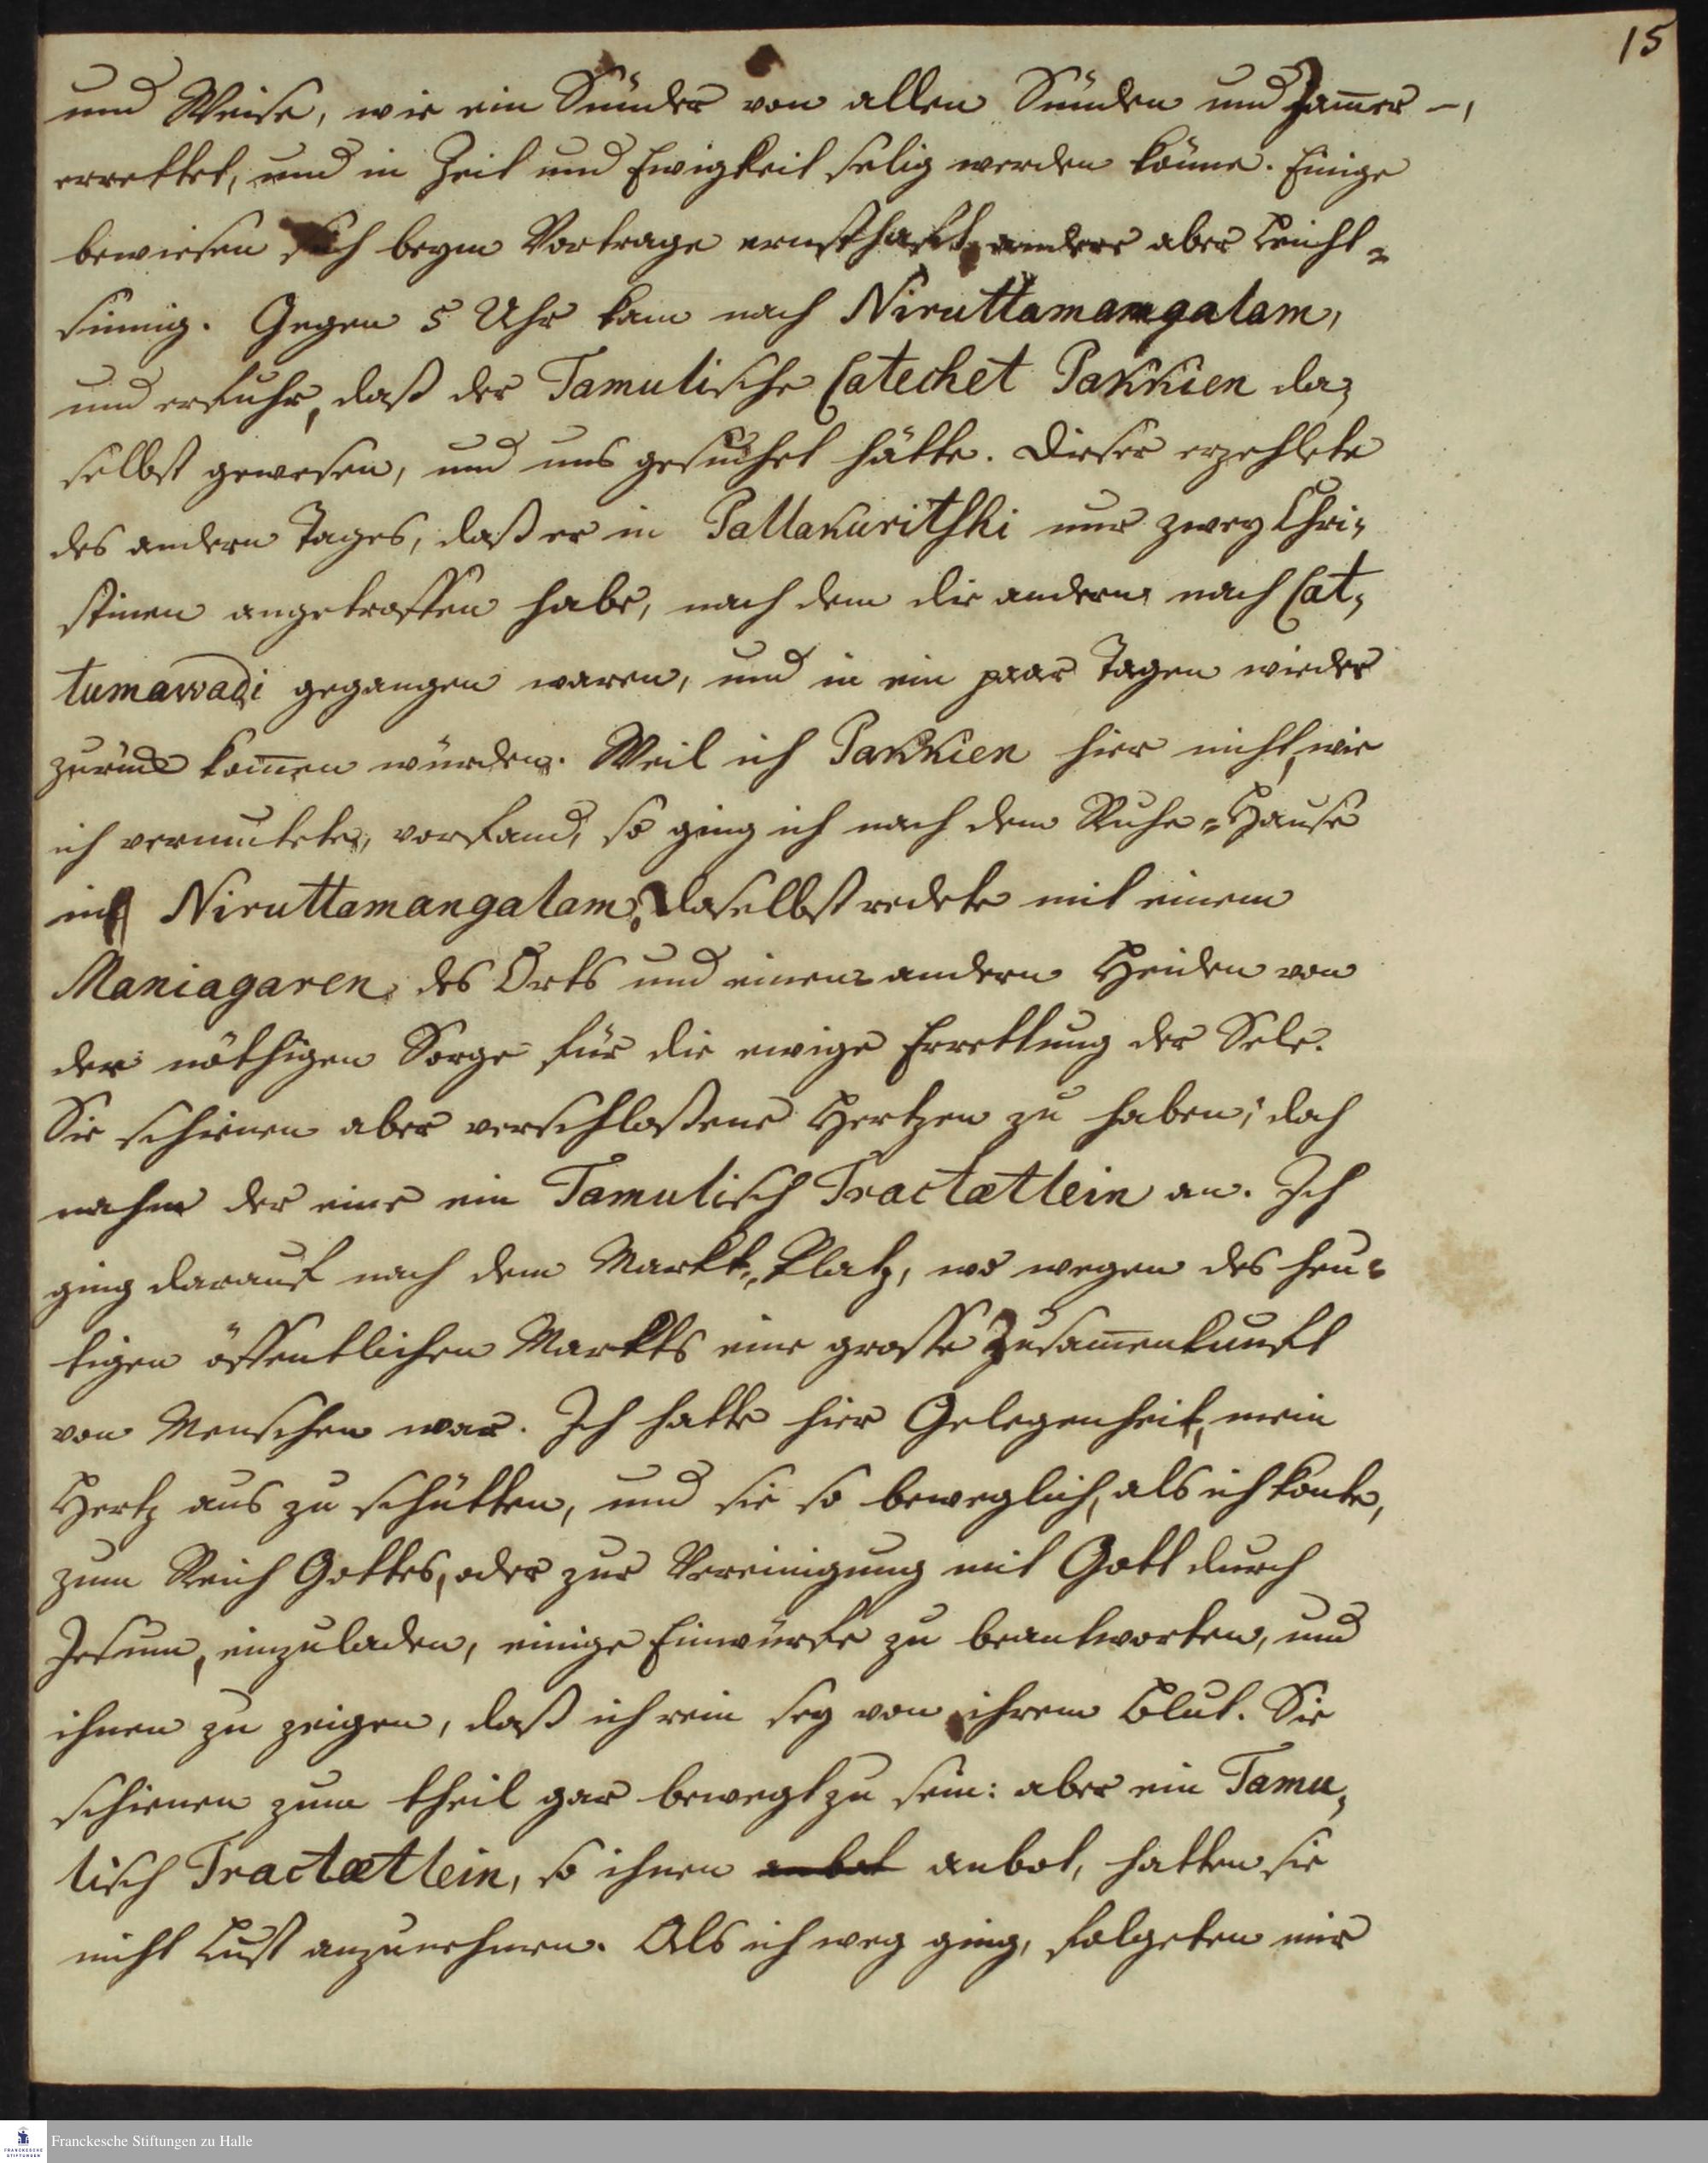 15
und Weise, wie ein Sünder von allen Sünden und Jam̅er -,
errettet, und in Zeit und Ewigkeit selig werden könne. Einige
bewiesen sich beym Vortrage ernsthafft, andere aber Leicht=
sinnig. Gegen 5 Uhr kam nach Niruttamangalam,
und erfuhr, daß der Tamulische Catechet Pakkien da=
selbst gewesen, und uns gesuchet hätte. Dieser erzehlete
des andern Tages, daß er in Pallakuritshi nur zwey Chri=
stinen angetroffen habe, nach dem die andern nach Cat=
tumawadi gegangen waren, und in ein paar Tagen wieder
zurück kom̅en würden. Weil ich Pakkien hier nicht, wie
ich vermutete, vorfand, so ging ich nach dem Ruhe=Hause
in Niruttamangalam, daselbst redete mit einem
Maniagaren des Orts und einem andern Heiden von
der nöthigen Sorge für die ewige Errettung der Sele.
Sie schienen aber verschloßene Hertzen zu haben; doch
nahm der eine ein Tamulisch Tractætlein an. Ich
ging darauf nach dem Markt=Platz, wo wegen des heu=
tigen öffentlichen Markts eine grosse Zusam̅enkunft
von Menschen war. Ich hatte hier Gelegenheit, mein
Hertz aus zu schütten, und sie so beweglich, als ich konte,
zum Reich Gottes, oder zur Vereinigung mit Gott durch
Jesum, einzuladen, einige Einwürfe zu beantworten, und
ihnen zu zeigen, daß ich rein sey von ihrem Blut. Sie
schienen zum theil gar bewegt zu sein: aber ein Tamu=
lisch Tractætlein, so ihnen anbot anbot, hatten sie
nicht Lust anzunehmen. Als ich weg ging, folgeten mir
FRANCKESCHE STIFTUNGEN
Franckesche Stiftungen zu Halle